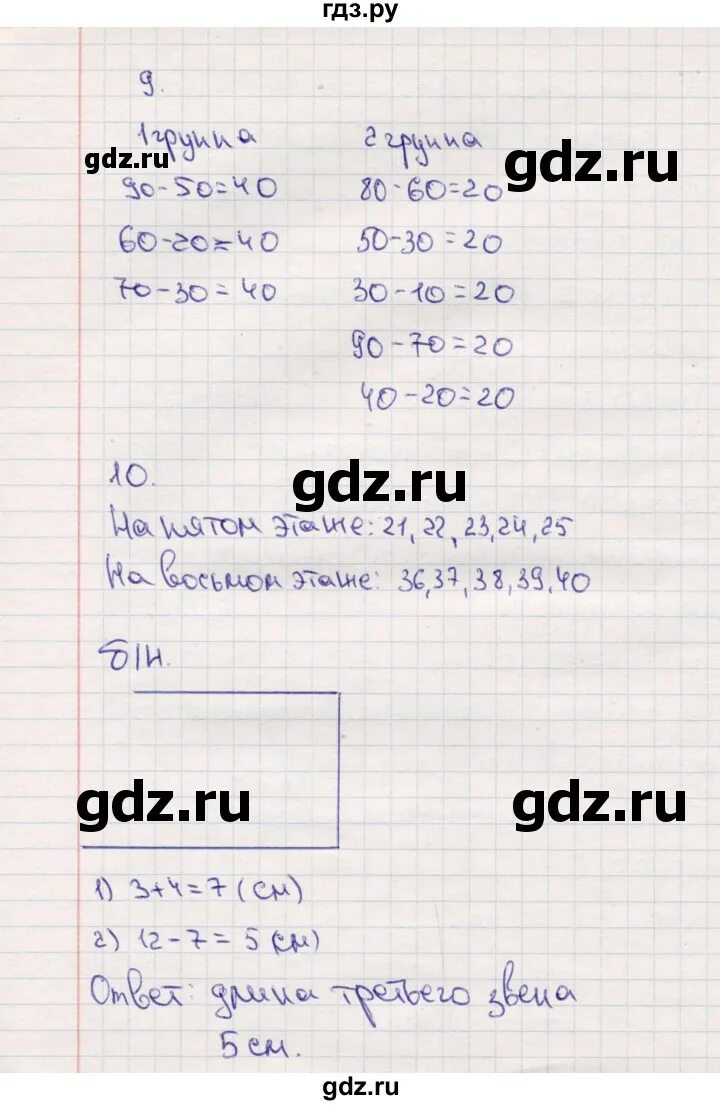 гдз.ру
9.
1 группа
2 группа
gdz.ru
gdz.ru
90-50=40
80-60=20
60-20=40
50-30=20
70-30=40
30-10=20
90-70=20
40-20=20
10.
gdz.ru
На пятом этаже: 21, 22, 23, 24, 25
На восьмом этаже: 36, 37, 38, 39, 40
б/н.
gdz.ru
gdz.ru
1) 3+4=7 (см)
2) 12-7=5 (см)
Ответ: длина третьего звена
5 см.
gdz.ru